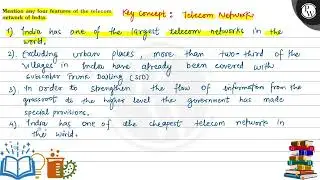 Mention any four features of the telecom
network of India.
Key concept : Telecom Network
1) India has one of the largest telecom networks in the
world.
2) Excluding urban places, more than two-third of the
villages in India have already been covered with
subscriber Trunk Dialling (STD)
3) In order to strengthen the flow of information from the
grassroot to the higher level the government has made
special provisions.
4) India has one of the cheapest telecom network in
the world.